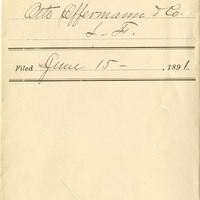 Otto Effermann & Co.
S-F.
Filed June 15 - , 1891.